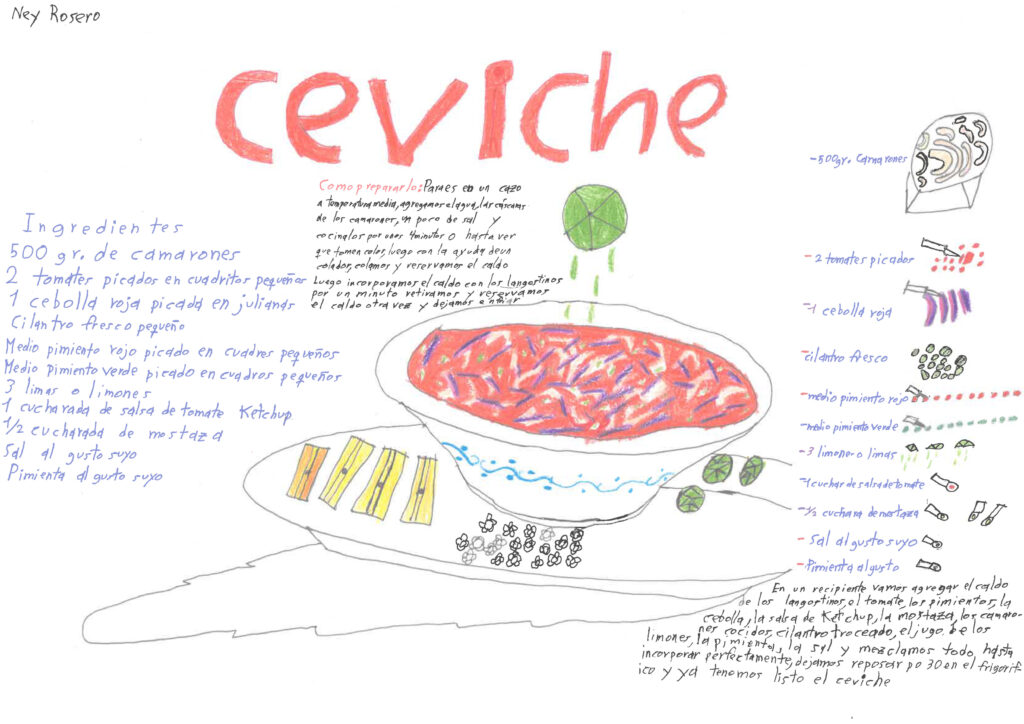 Ney Rosero
ceviche
Como prepararlo: Para es en un cazo
a temperatura media, agregamos el agua, las cáscaras
de los camarones, un poco de sal y
cocinalos por unos 4 minutos o hasta ver
que tomen color, luego con la ayuda de un
colador, colamos y reservamos el caldo
Luego incorporamos el caldo con los langostinos
por un minuto retiramos y reservamos
el caldo otra vez y dejamos a
Ingredientes
500 gr. de camarones
2 tomates picados en cuadritos pequeños
1 cebolla roja picada en julianas
Cilantro fresco pequeño
Medio pimiento rojo picado en cuadres pequeños
Medio pimiento verde picado en cuadros pequeños
3 limas o limones
1 cucharada de salsa de tomate Ketchup
1/2 cucharada de mostaza
Sal al gusto suyo
Pimienta al gusto suyo
-500gr. Camarones
-2 tomates picador
-1 cebolla roja
-cilantro fresco
-medio pimiento rojo
-medio pimiento verde
-3 limone o limas
-1 cuchar de salsa de tomate
-1/2 cuchara de mostaza
- Sal al gusto suyo
-Pimienta al gusto
En un recipiente vamos agregar el caldo
de los langostinos, el tomate, los pimientos, la
cebolla, la salsa de Ketchup, la mostaza, los camaro-
nes cocidos, cilantro troceado, el jugo de los
limones, la pimienta, la sal y mezclamos todo, hasta
incorporar perfectamente, dejamos reposar po 30 en el frigorif-
ico y ya tenemos listo el ceviche